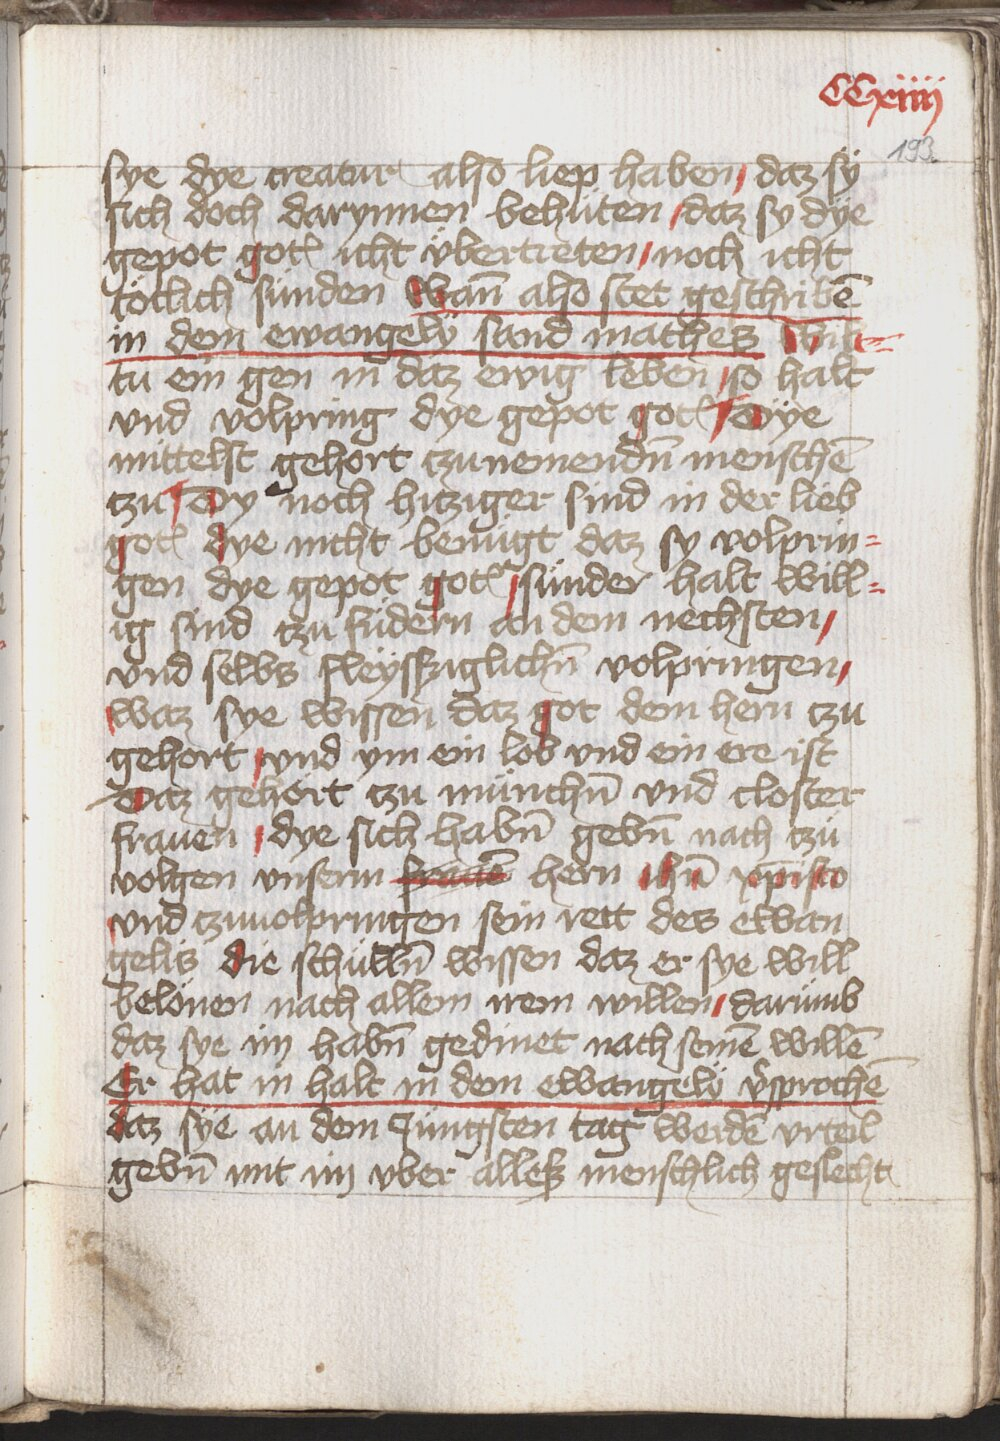 CCxiiij
193
sye dye creatur also liep haben, daz sÿ
sich doch darynnen behüten, daz sy dÿe
gepot gotꝭ icht vbertreten, noch icht
tötlich sünden Wan̄ also stet geschribē
in dem ewangelÿ sand matheß Wil=
tu ein gen in daz ewig leben, so halt
vnd volpring dye gepot gotꝭ Dÿe
mittelst gehort tzunemendn̄ menschē
tzu, Dy noch hitziger sind in der lieb
gotꝭ dye nicht benügt daz sy volprin=
gen dye gepot gotꝭ, sünder halt will=
ig sind tzu füdern an dem nechsten,
vnd selbs fleyssiglichn̄ volpringen,
waz sye wissen daz got dem hern tzu
gehort, vnd ym ein lob vnd ein ere ist
Daz gehört tzu münchn̄ vnd closter
frauen, dye sich habn̄ gebn̄ nach tzü
volgen vnserm hern ihū xp̄isto
vnd tzuuolpringen sein rett des ewan
gelis die schülln̄ wissen daz er sye will
belönen nach allem irem willen, darümb
daz sye im habn̄ gedinet nach seinē willē
Er hat in halt in dem ewangelÿ v̄sprochē
daz sÿe an dem Jüngsten tag werdē vrteil
gebn̄ mit im vber alleß menschlich geslecht